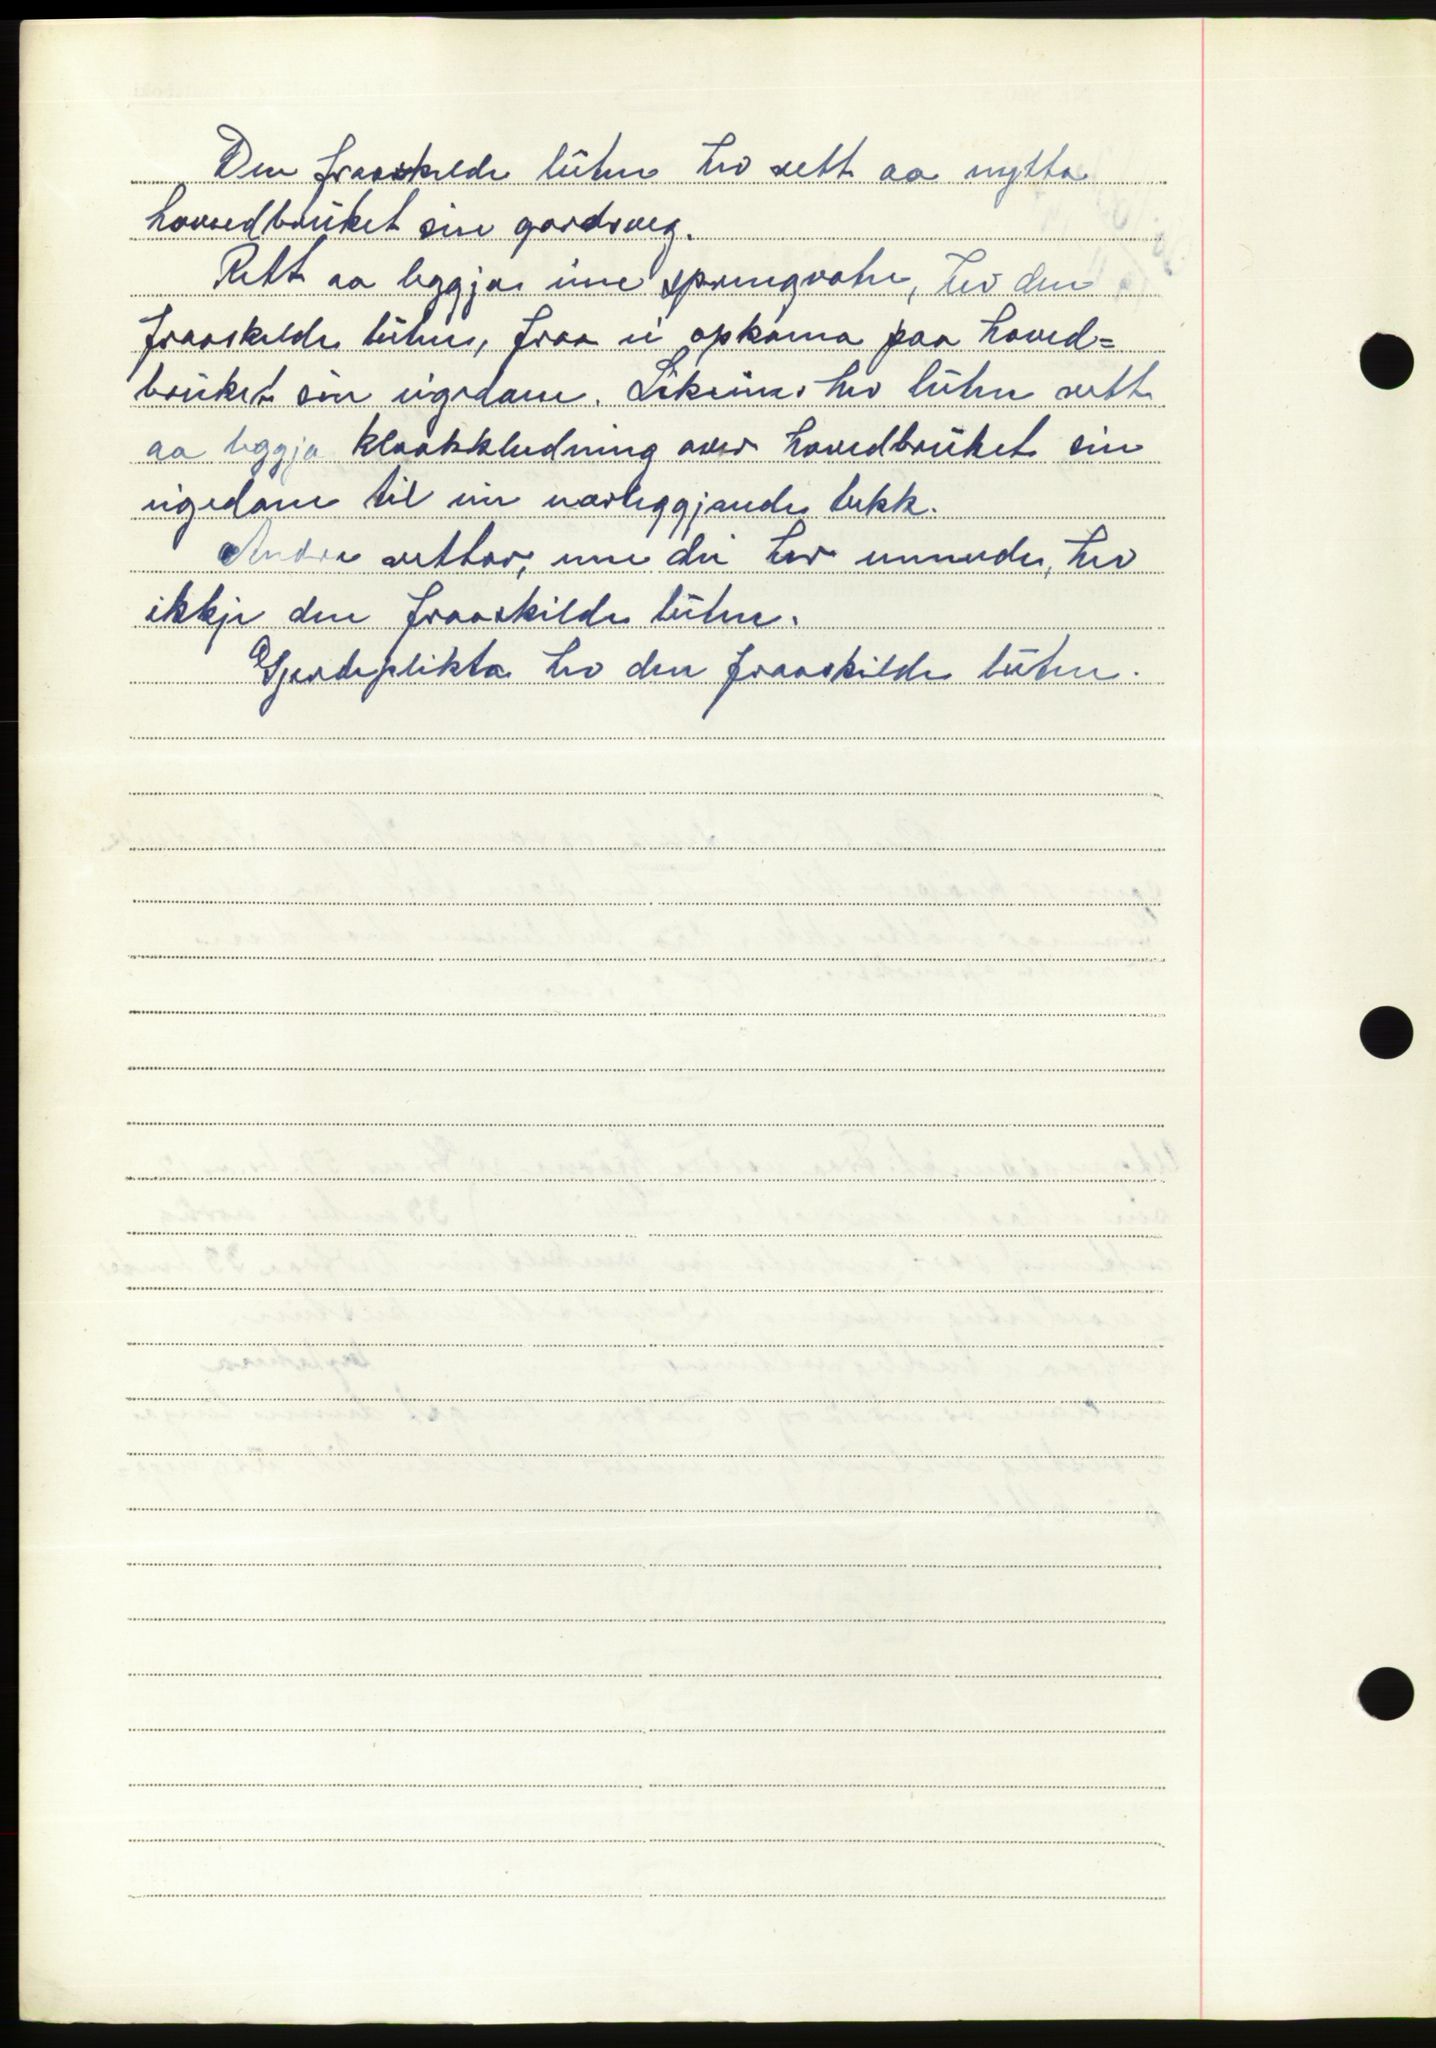 Den fraaskilde luten hev rett aa nytta
hovedbruket sin gardsveg.
Rett aa leggja inn springvatn, hev den
fraaskilde luten, fraa ei opkoma paa hoved=
bruket sin eigedom. Likeins hev luten rett
aa leggja kloakkledning over hovedbruket sin
eigedom til ein nærleggjande bekk.
Andre rettar, enn dei her nemnde, hev
ikkje den fraaskilde luten.
Gjerdeplikta hev den fraaskilde luten.